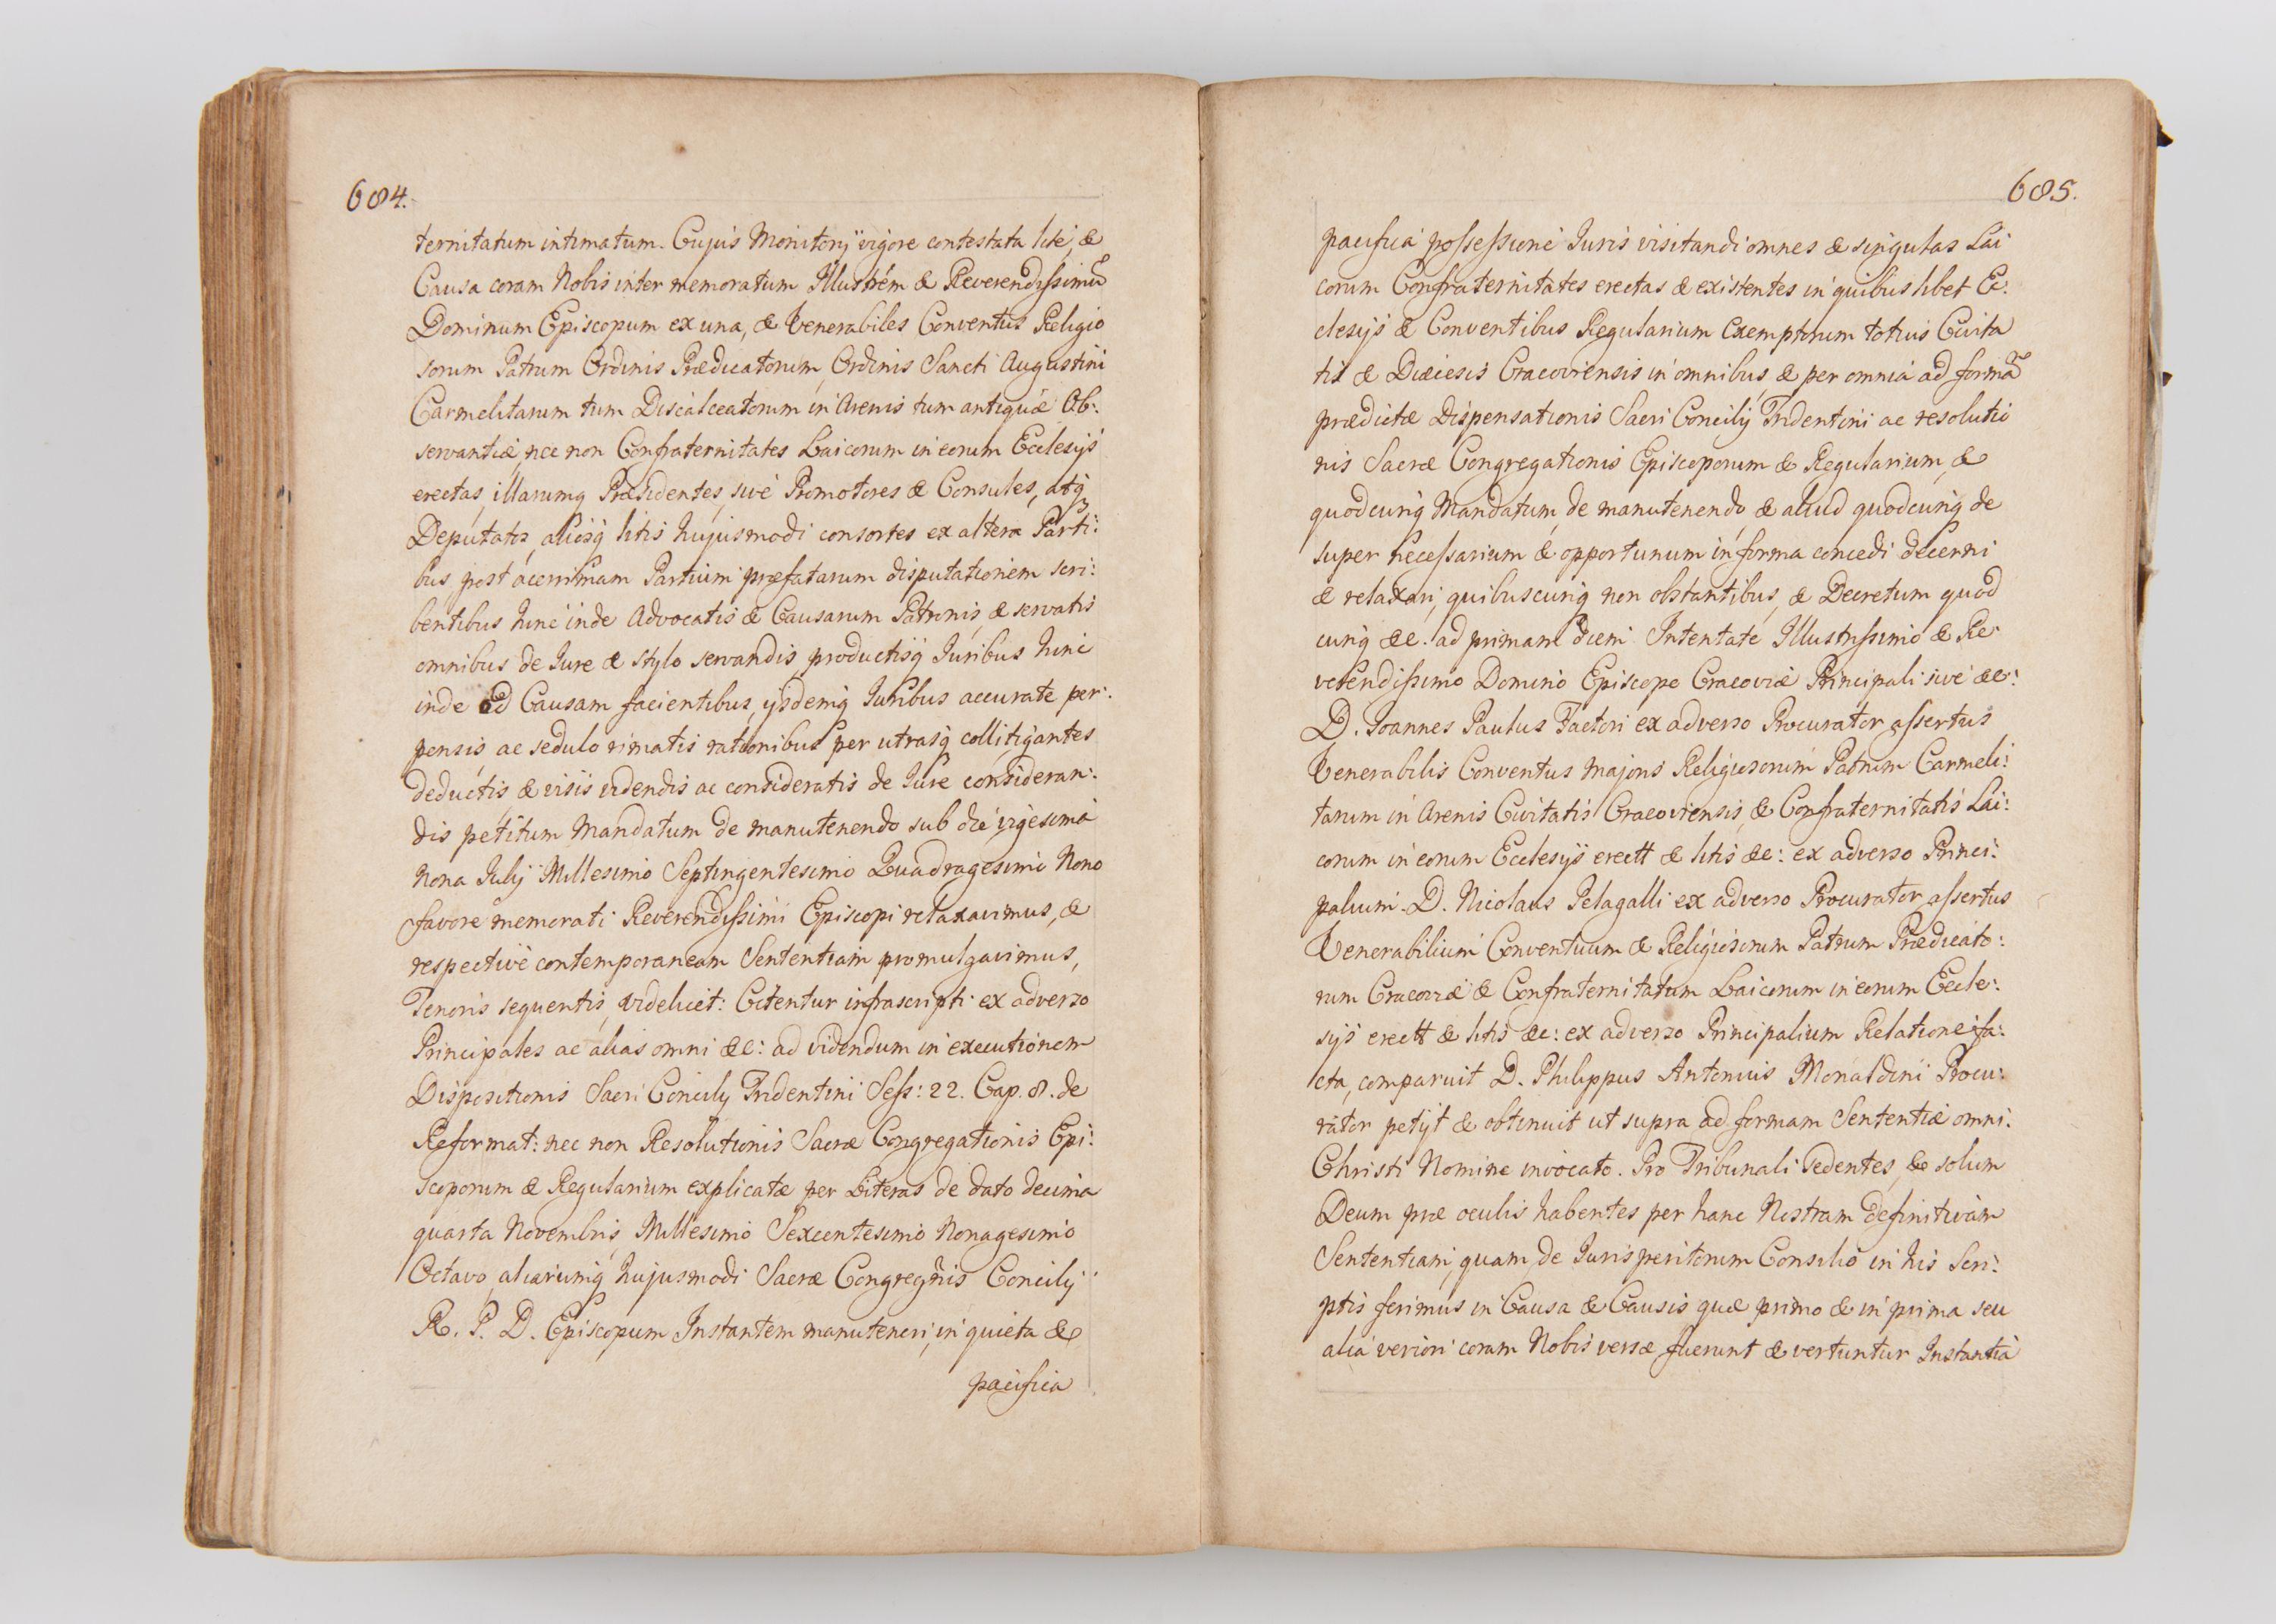 684.
ternitatum intimatum. Cujus Monitorÿ vigore contestata lite, &
Causa coram Nobis inter memoratum Illustrem & Reverendissimũ
Dominum Episcopum ex una, & Venerabiles Conventus Religio
sorum Patrum Ordinis Prædicatorum, Ordinis Sancti Augustini
Carmelitarum tum Discalceatorum in Arenis tum antiquæ Ob:
servantiæ, nec non Confraternitates Laicorum in eorum Ecclesÿs
erectas, illarumq Præsidentes, sive Promotores & Consules, atq3
Deputatos, aliosq litis hujusmodi consortes ex altera Parti:
bus post acerrimam Partium præfatarum disputationem scri:
bentibus hinc inde Advocatis & Causarum Patronis, & servatis
omnibus de Jure & stylo servandis, productisq Juribus hinc
inde ad Causam facientibus, ÿsdemq Juribus accurate per:
pensis, ac sedulo rimatis rationibus per utrasq collitigantes
deductis, & visis videndis ac consideratis de Jure consideran:
dis petitum Mandatum de manutenendo sub die vigesima
Nona Julÿ Millesimo Septingentesimo Quadragesimo Nono
favore memorati Reverendissimi Episcopi relaxavimus, &
respective contemporaneam Sententiam promulgavimus,
Tenoris sequentis, videlicet: Citentur infrascripti ex adverso
Principales ac alias omni &c: ad videndum in executionem
Dispositionis Sacri Concilÿ Tridentini Sess: 22. Cap. 8. de
Reformat: nec non Resolutionis Sacræ Congregationis Epi:
scoporum & Regularium explicatæ per Literas de dato decima
quarta Novembris, Millesimo Sexcentesimo Nonagesimo
Octavo, aliarumq hujusmodi Sacræ Congregñis Concilÿ
R. P. D. Episcopum Instantem manuteneri, in quieta &
pacifica
685.
pacifica possessione Juris visitandi omnes & singulas Lai
corum Confraternitates erectas & existentes in quibuslibet Ec:
clesÿs & Conventibus Regularium Exemptorum totius Civita
tis & Diæcesis Cracoviensis in omnibus, & per omnia ad formã
prædictæ Dispensationis Sacri Concilÿ Tridentini ac resolutio
nis Sacræ Congregationis Episcoporum & Regularium, &
quodcunq Mandatum, de manutenendo, & aliud quodcunq de
super necessarium & opportunum in forma concedi decerni
& relaxari, quibuscunq non obstantibus, & Decretum quod
cunq &c: ad primam diem Intentate Illustrissimo & Re:
verendissimo Domino Episcopo Cracoviæ Principali sive &c:
D. Joannes Paulus Factori ex adverso Procurator assertus
Venerabilis Conventus majoris Religiosorum Patrum Carmeli:
tarum in Arenis Civitatis Cracoviensis, & Confraternitatis Lai:
corum in eorum Ecclesÿs erectt & litis &c: ex adverso Princi:
palium. D. Nicolaus Pelagalli ex adverso Procurator assertus
Venerabilium Conventuum & Religiosorum Patrum Prædicato:
rum Cracoviæ & Confraternitatum Laicorum in eorum Eccle:
sÿs erectt & litis &c: ex adverso Principalium Relatione fa:
cta, comparuit D. Philippus Antonius Monaldini Procu:
rator petÿt & obtinuit ut supra ad formam Sententiæ omni:
Christi Nomine invocato. Pro Tribunali Sedentes, & solum
Deum præ oculis habentes per hanc Nostram definitivam
Sententiam, quam, de Jurisperitorum Consilio in his Scri:
ptis ferimus in Causa & Causis quæ primo & in prima seu
alia veriori coram Nobis versæ fuerunt & vertuntur Instantia